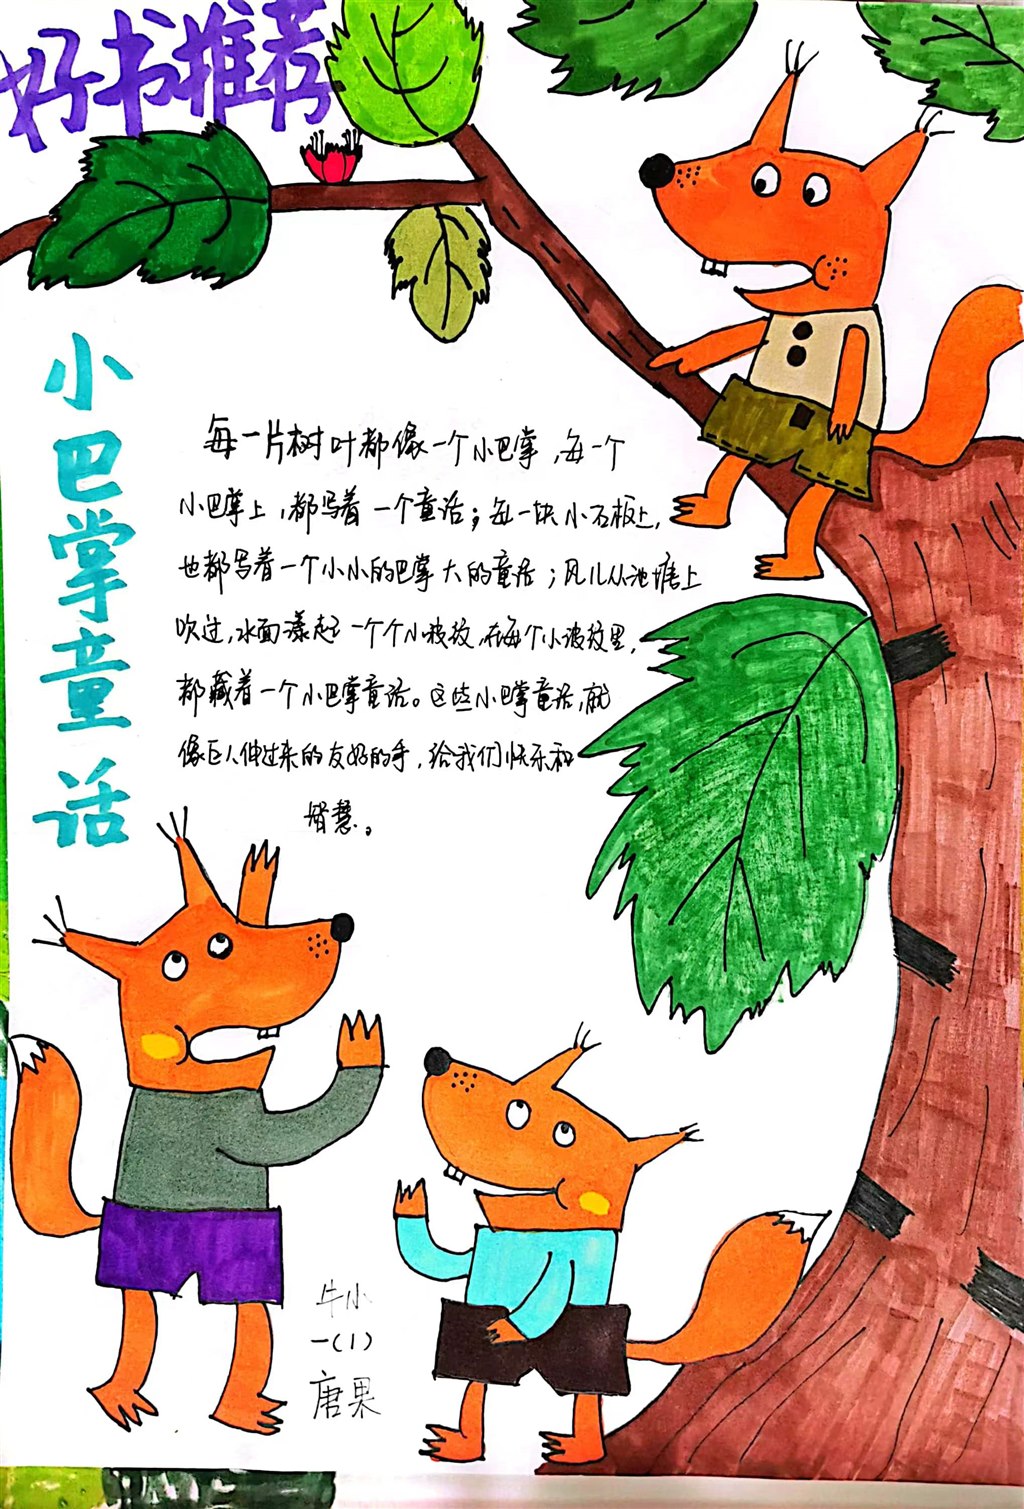 好书推荐
小巴掌童话
每一片树叶都像一个小巴掌,每一个
小巴掌上,都写着一个童话;每一块小石板上,
也都写着一个小小的巴掌大的童话;风儿从池塘上
吹过,水面漾起一个个小波纹,在每个小波纹里,
都藏着一个小巴掌童话。这些小巴掌童话,就
像巨人伸过来的友好的手,给我们快乐和
智慧。
牛小
一(1)
唐果